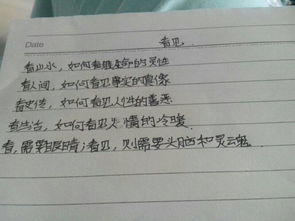 Date
看见
看山水，如何看见生命的灵性
看人间，如何看见事实的真像
看史传，如何看见人性的善恶
看生活，如何看见人情的冷暖
看，需要眼睛；看见，则需要头脑和灵魂